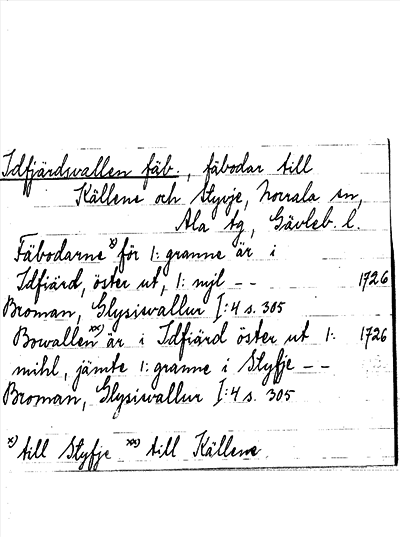 Idfjärdsvallen fäb., fäbodar till
Källene och Styvje, Norrala sn,
Ala tg, Gävleb. l.
Fäbodarne x) för 1: granne är i
Idfiärd, öster ut, 1: mjl – – 1726
Broman, Glysisvallur I:4 s. 305
Bowallen xx) är i Idfiärd öster ut 1: 1726
mihl, jämte 1: granne i Styfje – –
Broman, Glysisvallur I:4 s. 305
x) till Styfje xx) till Källene.